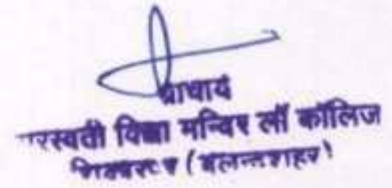 प्राचार्य
सरस्वती विद्या मन्दिर लॉ कॉलिज
(बुलन्दशहर)